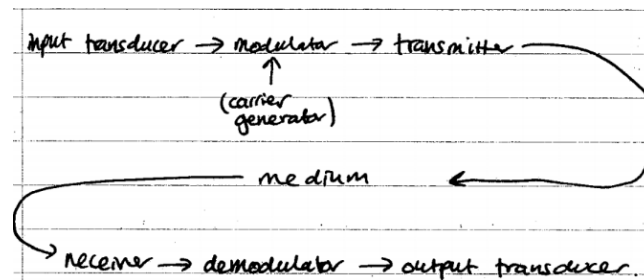 input transducer → modulator → transmitter
(carrier
generator)
medium
receiver → demodulator → output transducer.